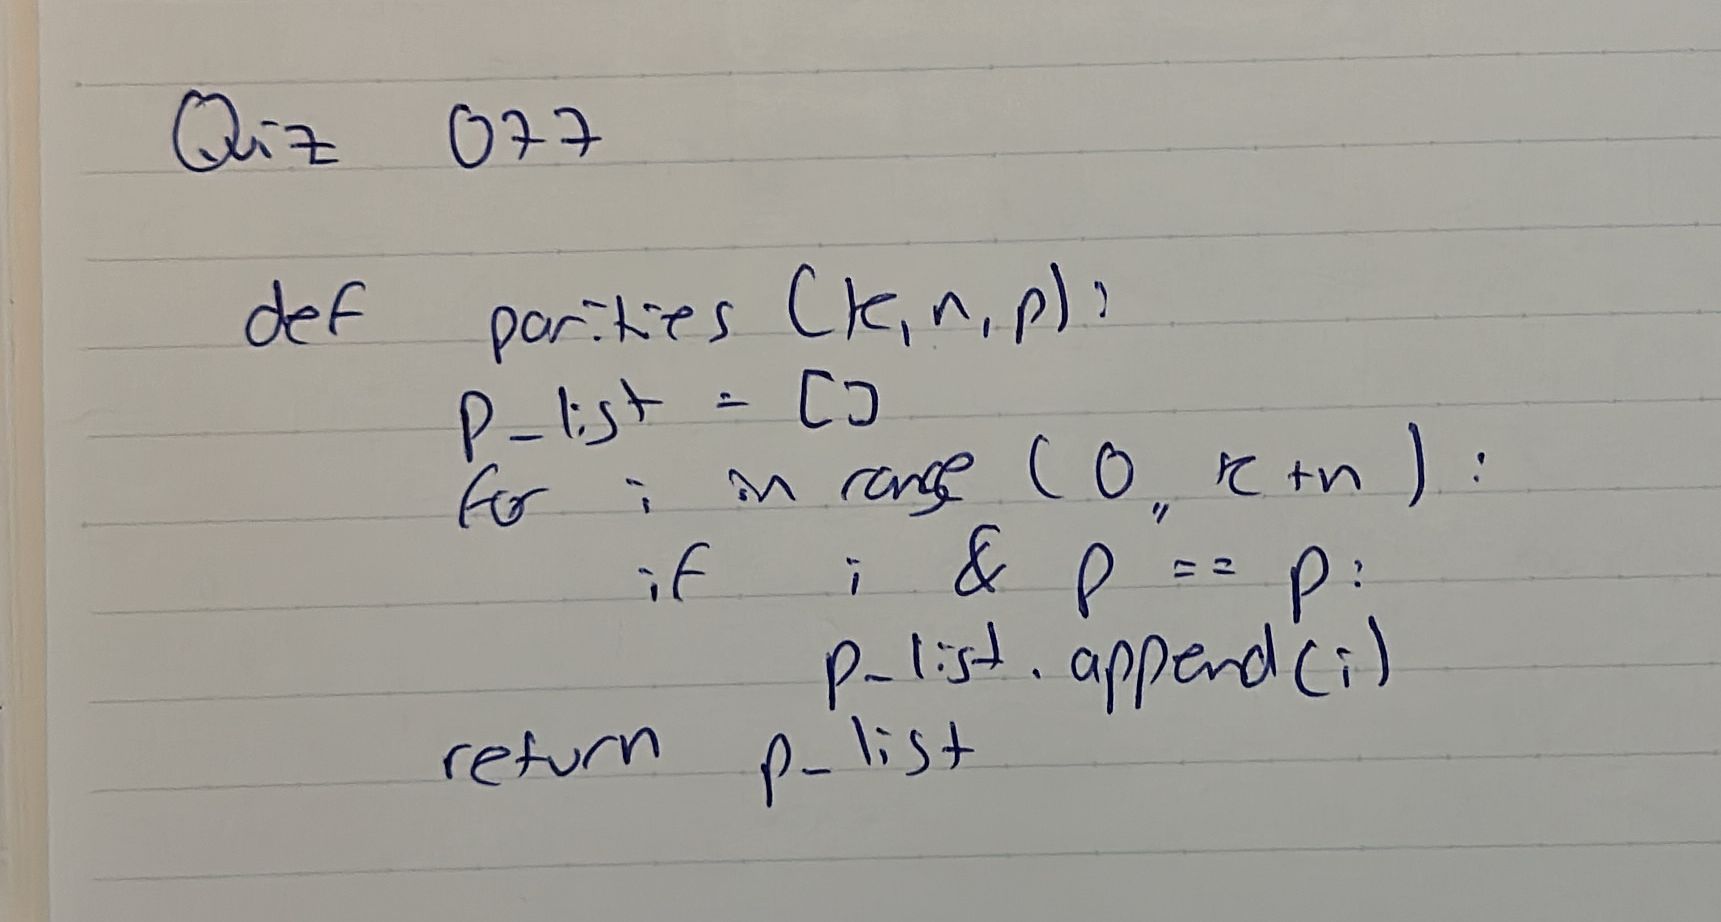 Quiz 077
def parities (k, n, p):
p_list = []
for i in range (0,, k+n):
if i & p == p:
p_list.append(i)
return p_list